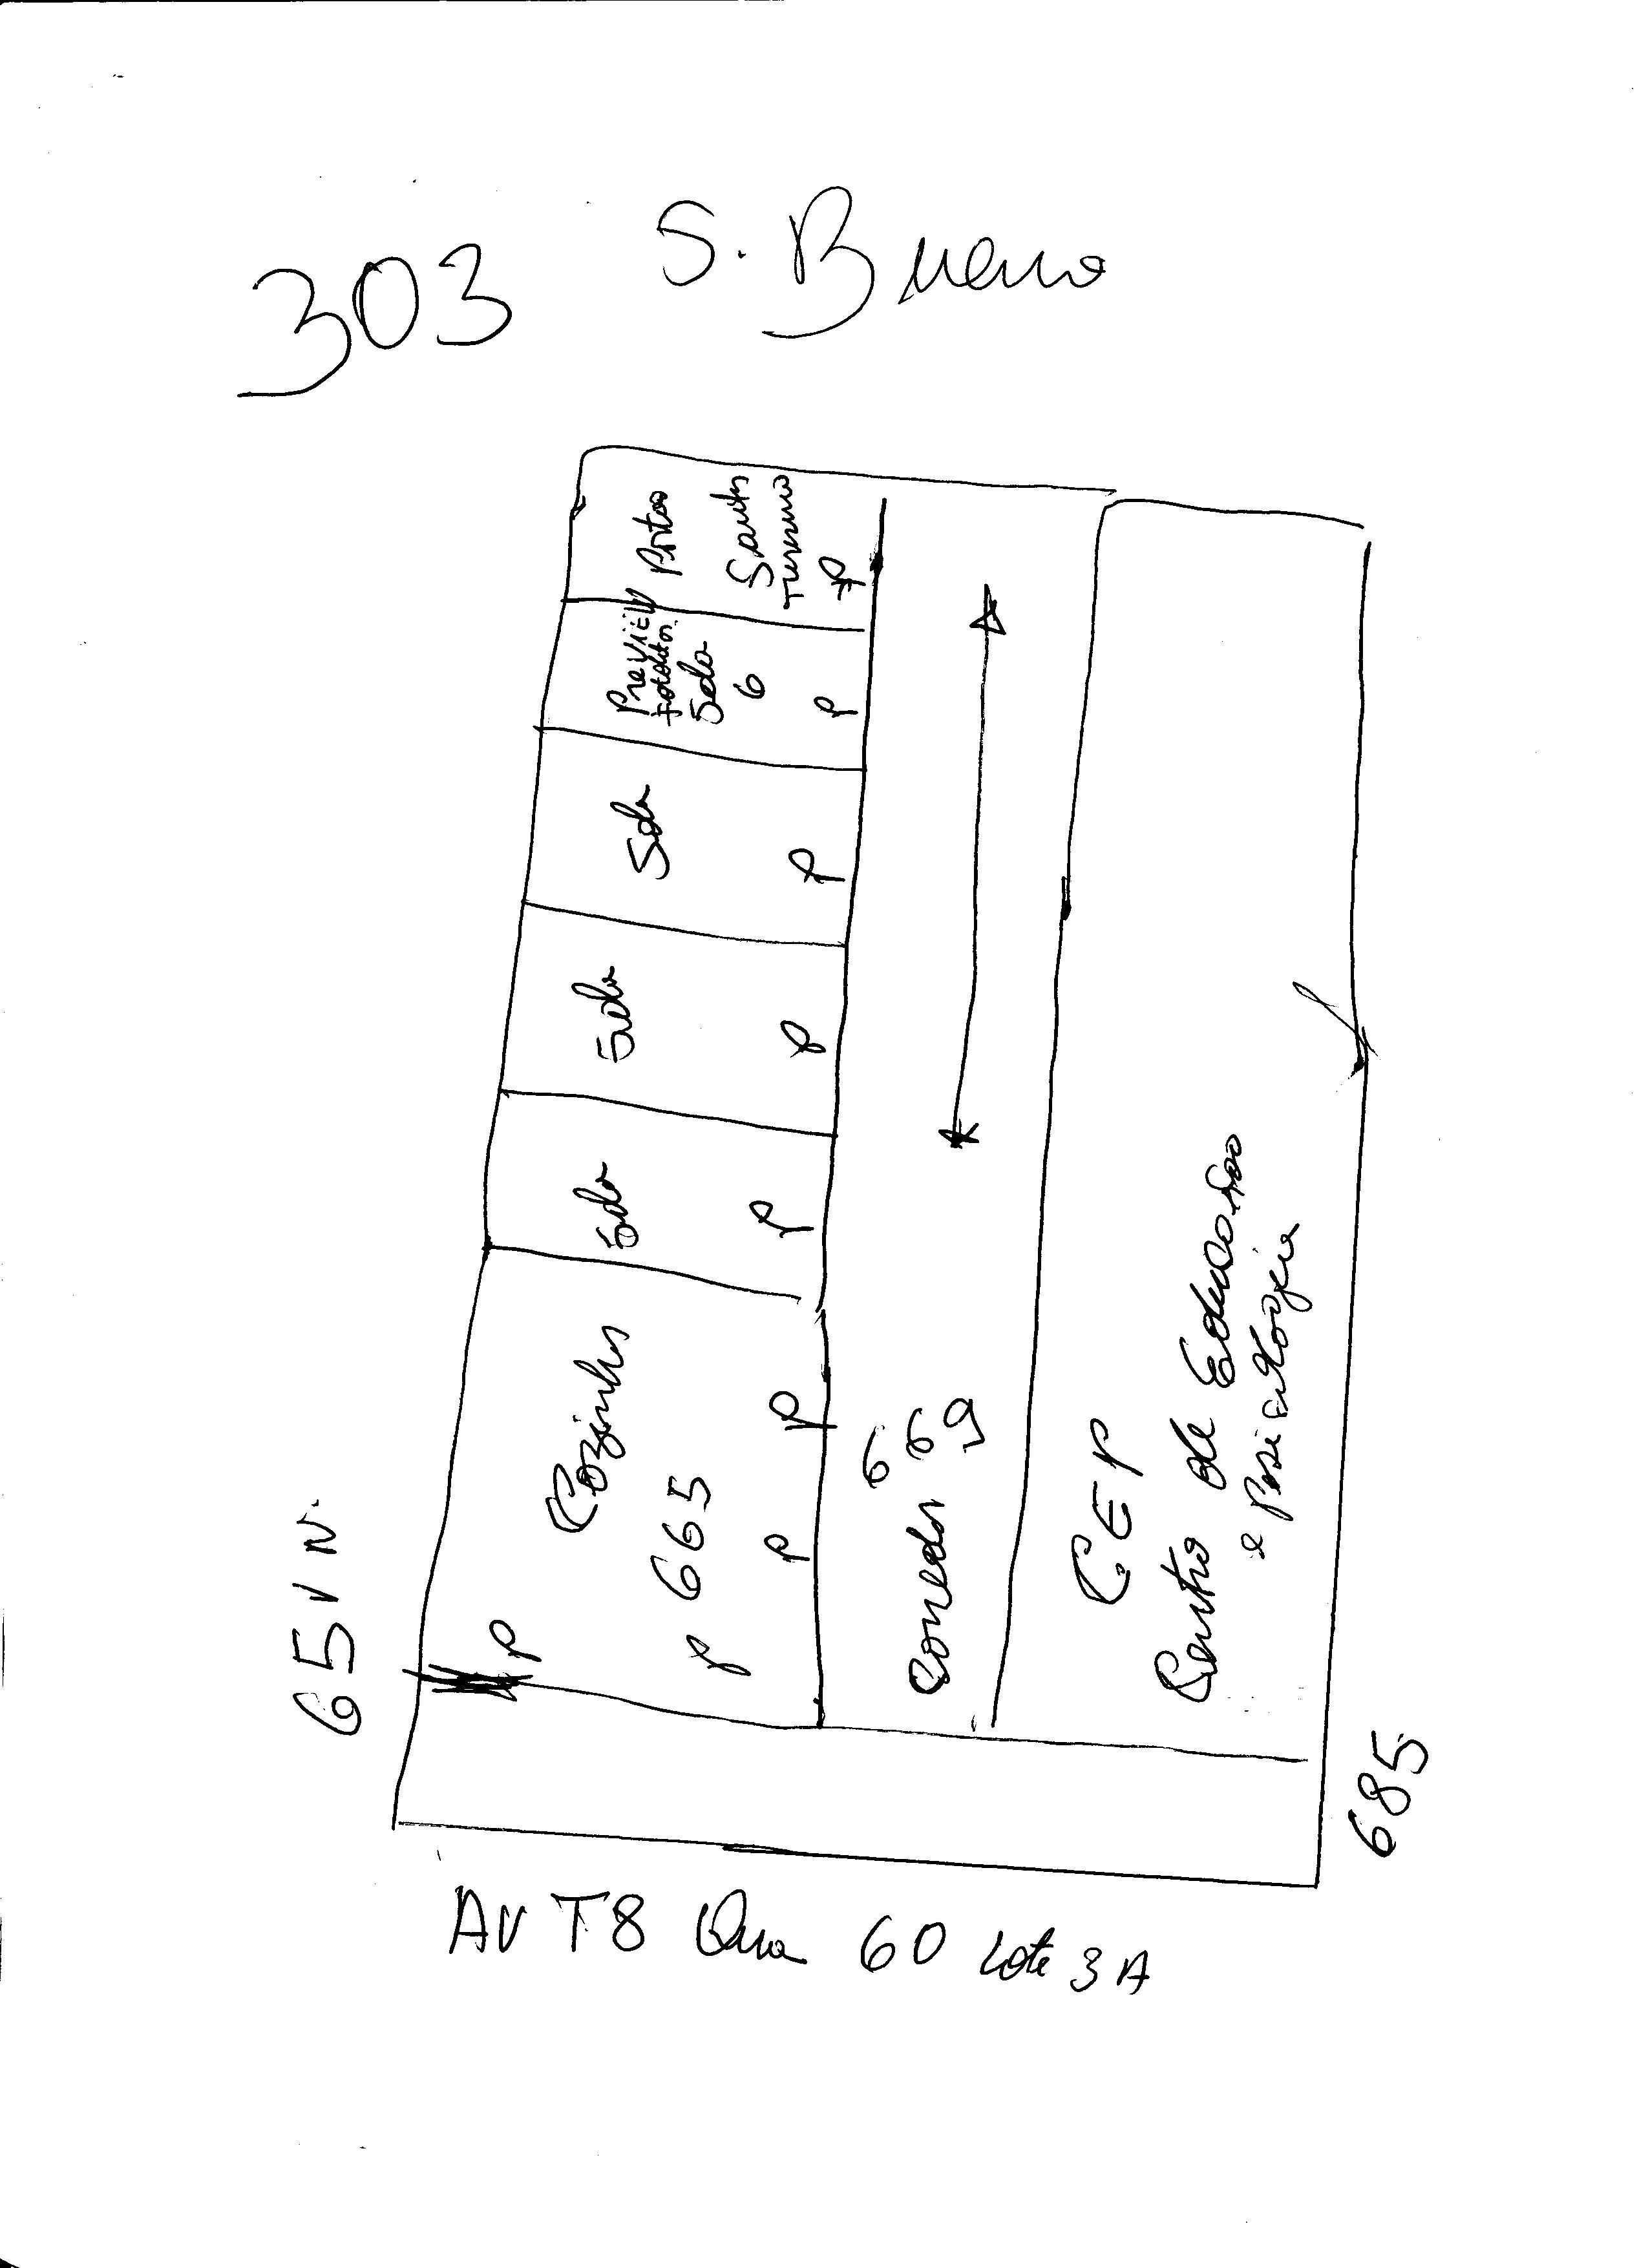 303 S. Bueno
Portas
Santos
Turismo
P
Preview
fotolitos
Sala
6
P
Sala
P
Sala
P
Sala
P
Cozinha
665
P
P
P
P
Corredor 669
CEP
Centro de Educação
e Psicologia
651 N.
685
AV T8 Qua 60 Lote 3A